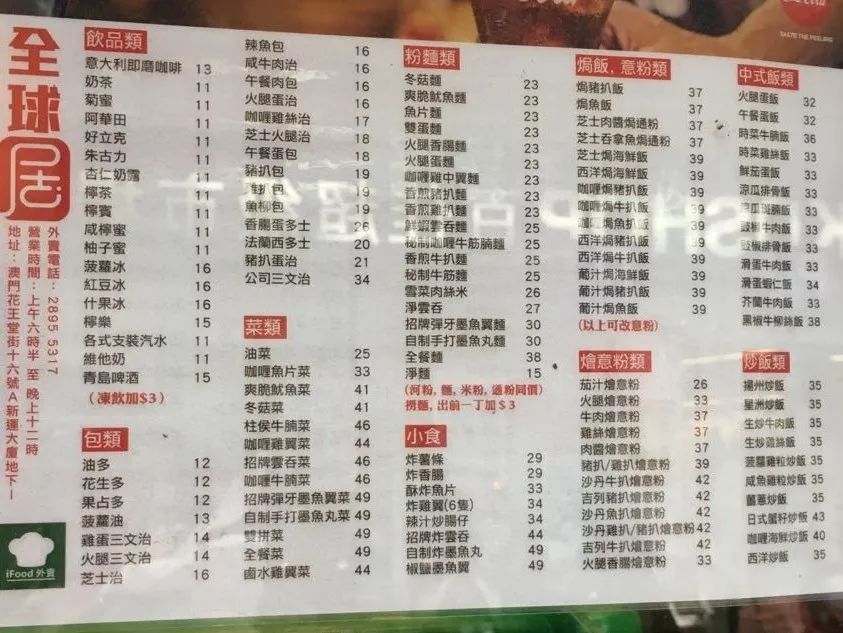 TASTE THE FEELING
全球居
外賣電話：2895 5317
營業時間：上午六時半 至 晚上十二時
地址：澳門花王堂街十六號A新運大廈地下
iFood 外賣
飲品類
意大利即磨咖啡 13
奶茶 11
菊蜜 11
阿華田 11
好立克 11
朱古力 11
杏仁奶露 11
檸茶 11
檸賓 11
咸檸蜜 11
柚子蜜 11
菠蘿冰 16
紅豆冰 16
什果冰 16
檸樂 15
各式支裝汽水 11
維他奶 11
青島啤酒 15
(凍飲加$3)
包類
油多 12
花生多 12
果占多 12
菠蘿油 13
雞蛋三文治 14
火腿三文治 14
芝士治 16
辣魚包 16
咸牛肉治 16
午餐肉包 16
火腿蛋治 16
咖喱雞絲治 17
芝士火腿治 18
午餐蛋包 18
豬扒包 19
雞扒包 19
魚柳包 19
香腸蛋多士 26
法蘭西多士 20
豬扒蛋治 21
公司三文治 34
菜類
油菜 25
咖喱魚片菜 33
爽脆魷魚菜 41
冬菇菜 41
柱侯牛腩菜 46
咖喱雞翼菜 44
招牌雲吞菜 46
咖喱牛腩菜 46
招牌彈牙墨魚翼菜 49
自制手打墨魚丸菜 49
雙拼菜 49
全餐菜 49
鹵水雞翼菜 44
粉麵類
冬菇麵 23
爽脆魷魚麵 23
魚片麵 23
雙蛋麵 23
火腿香腸麵 23
火腿蛋麵 23
咖喱雞中翼麵 23
香煎豬扒麵 23
香煎雞扒麵 23
鮮蝦雲吞麵 25
秘制咖喱牛筋腩麵 25
香煎牛扒麵 25
秘制牛筋麵 25
雪菜肉絲米 26
淨雲吞 27
招牌彈牙墨魚翼麵 30
自制手打墨魚丸麵 30
全餐麵 38
淨麵 15
(河粉, 麵, 米粉, 通粉同價)
撈麵, 出前一丁加$3
小食
炸薯條 29
炸香腸 29
酥炸魚片 33
炸雞翼(6隻) 34
辣汁炒腸仔 34
招牌炸雲吞 44
自制炸墨魚丸 49
椒鹽墨魚翼 49
焗飯, 意粉類
焗豬扒飯 37
焗魚飯 37
芝士肉醬焗通粉 37
芝士吞拿魚焗通粉 39
芝士焗海鮮飯 39
西洋焗海鮮飯 39
咖喱焗豬扒飯 39
咖喱焗牛扒飯 39
咖喱焗魚扒飯 39
西洋焗豬扒飯 39
西洋焗牛扒飯 39
葡汁焗海鮮飯 39
葡汁焗豬扒飯 39
葡汁焗魚飯 39
(以上可改意粉)
燴意粉類
茄汁燴意粉 26
火腿燴意粉 33
牛肉燴意粉 37
雞絲燴意粉 37
肉醬燴意粉 37
豬扒/雞扒燴意粉 39
沙丹牛扒燴意粉 42
吉列豬扒燴意粉 42
沙丹魚扒燴意粉 42
沙丹雞扒/豬扒燴意粉 42
吉列牛扒燴意粉 42
火腿香腸燴意粉 33
中式飯類
火腿蛋飯 32
午餐蛋飯 32
時菜牛腩飯 36
時菜雞絲飯 33
鮮茄蛋飯 33
涼瓜排骨飯 33
涼瓜斑腩飯 33
豉椒牛肉飯 33
豉椒排骨飯 33
滑蛋牛肉飯 33
滑蛋蝦仁飯 34
芥蘭牛肉飯 33
黑椒牛柳絲飯 38
炒飯類
揚州炒飯 35
星洲炒飯 35
生炒牛肉飯 35
生炒雞絲飯 35
菠蘿雞粒炒飯 35
咸魚雞粒炒飯 35
薑蔥炒飯 35
日式蟹籽炒飯 43
咖喱海鮮炒飯 40
西洋炒飯 35